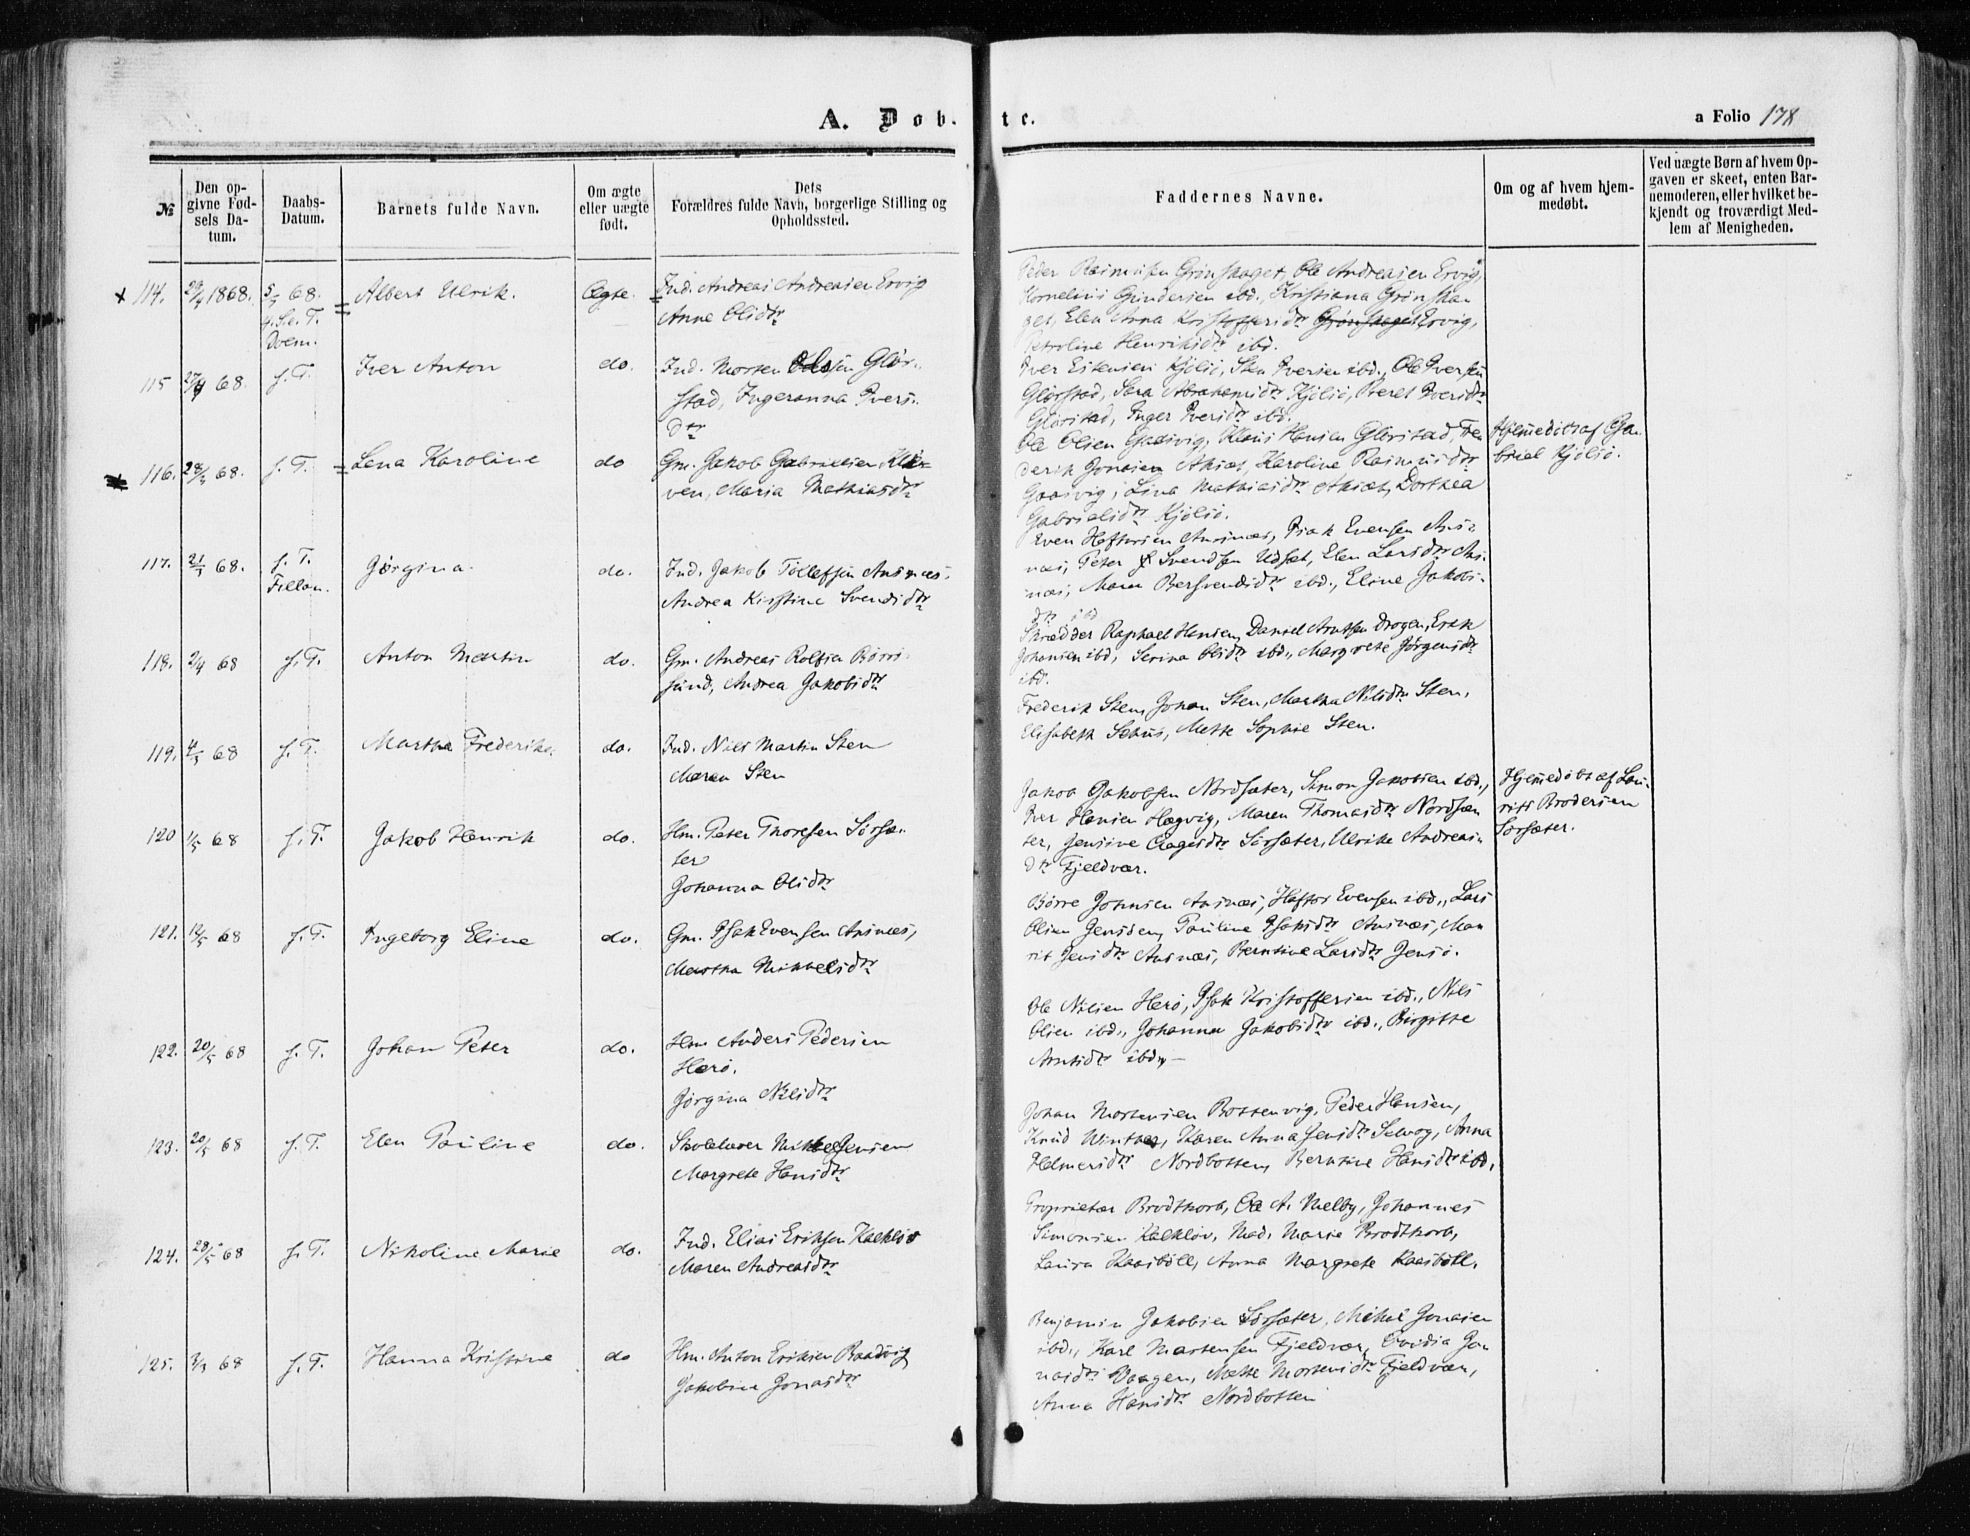 A. Døbte.
a Folio 178
№
Den opgivne Fødsels Datum.
Daabs-Datum.
Barnets fulde Navn.
Om ægte eller uægte født.
Dets Forældres fulde Navn, borgerlige Stilling og Opholdssted.
Faddernes Navne.
Om og af hvem hjemmedøbt.
Ved uægte Børn af hvem Opgaven er skeet, enten Barnemoderen, eller hvilket bekjendt og troværdigt Medlem af Menigheden.
114. 29/4 1868. 5/5 68. Albert Ulrik. Ægte. Ind. Andreas Andreasen Ervig
Anne Olsdtr
Peder Rasmusen Grønskaget, Ole Andreasen Ervig,
Kornelius Gundersen ibd., Kristiana Grønska-
get, Elen Anna Kristoffersdtr Grønskaget Ervig,
Petroline Henriksdtr ibd.
115 27/4 68. s. T. Iver Anton do. Ind. Morten Olsen Glør-
stad, Ingeranna Ivers-
dtr
Iver Estensen Kjølsø, Sten Iversen ibd., Ole Iversen
Glørstad, Sara Abrahamsdtr Kjølsø, Beret Iversdtr
Glørstad, Inger Iversdtr ibd.
116. 28/3 68. s. T. Lena Karoline do Gm. Jakob Gabrielsen
ven, Maria Mathiasdtr
Ole Olsen Gaasvig, Klaus Hansen Glørstad, Fre-
derik Jonasen, Karoline Rasmusdtr
Gaasvig, Lina Mathiasdtr, Dorthea
Gabrielsdtr Kjølsø.
Hjemmedøbt af Ga-
briel Kjølsø.
117. 21/3 68. s. T.
Fillan.
Jørgina. do. Ind. Jakob Tollefsen Ansnæs,
Andrea Kirstine Svendsdtr
Even Haftorsen Ansnæs, Isak Evensen Ans-
næs, Peter Svendsen Udset, Elen Larsdtr Ans-
næs, Maren Bersvendsdtr ibd., Eline Jakobs-
dtr ibd
118. 2/4 68 s. T. Anton Martin do. Gm. Andreas Rolfsen Børø-
sund, Andrea Jakobsdtr
Skrædder Raphael Hansen, Daniel Arntsen Drogen, Erik
Johansen ibd, Serina Olsdtr ibd., Margrete Jørgensdtr
ibd.
119. 4/5 68 s. T. Martha Frederika. do. Ind. Nils Martin Sten
Maren Sten
Frederik Sten, Johan Sten, Martha Nilsdtr Sten,
Elisabeth, Mette Sophie Sten.
120 1/5 68 s. T. Jakob Henrik do. Hm. Peter Thoresen Sørsæ-
ter
Johanna Olsdtr
Jakob Jakobsen Nordsæter, Simon Jakobsen ibd.,
Iver Hansen Hægvig, Maren Thomasdtr Nordsæ-
ter, Jensine Aagesdtr Sørsæter, Ulrike Andreas-
dtr Fjeldvær.
Hjemmedøbt af Lau-
rits Brodersen
Sørsæter.
121. 14/5 68 s. T. Ingeborg Eline do. Gm. Isak Evensen Ansnæs,
Martha Mikkelsdtr
Børre Johnsen Ansnæs, Haftor Evensen ibd., Lars
Olsen Jensøen, Pauline Isaksdtr Ansnæs, Ma-
rit Jensdtr Ansnæs, Berntine Larsdtr Jensø.
122. 20/5 68 s. T. Johan Peter do. Hm Anders Pedersen
Herø.
Jørgina Nilsdtr
Ole Nilsen Herø, Isak Kristoffersen ibd., Nils
Olsen ibd., Johanna Jakobsdtr ibd., Birgitte
Arntsdtr ibd. –
123. 20/5 68 s. T. Elen Pauline do. Skolelærer Mikkel Jensen
Margrete Hansdtr
Johan Mortensen Bottenvig, Peder Hansen,
Knud Winther, Karen Anna Jensdtr Selvog, Anna
Helmersdtr Nordbotten, Berntine Hansdtr ibd.
124. 28/5 68 s. T. Nikoline Marie do. Ind. Elias Eriksen Kalkløv
Maren Andreasdtr
Proprietær Brodtkorb, Ole A. Melby, Johannes
Simonsen Kalkløv, Mad. Marie Brodtkorb,
Laura Kaasbøll, Anna Margrete Kaasbøll.
125. s. T. Hanna Kristine do Hm. Anton Eriksen Baadvig
Jakobine Jonasdtr
Benjamin Jakobsen Sørsæter, Mikal Jonasen
ibd., Karl Mortensen Fjeldvær, Ovidia Jo-
nasdtr Vaagen, Mette Mortensdtr Fjeldvær,
Anna Hansdtr Nordbotten